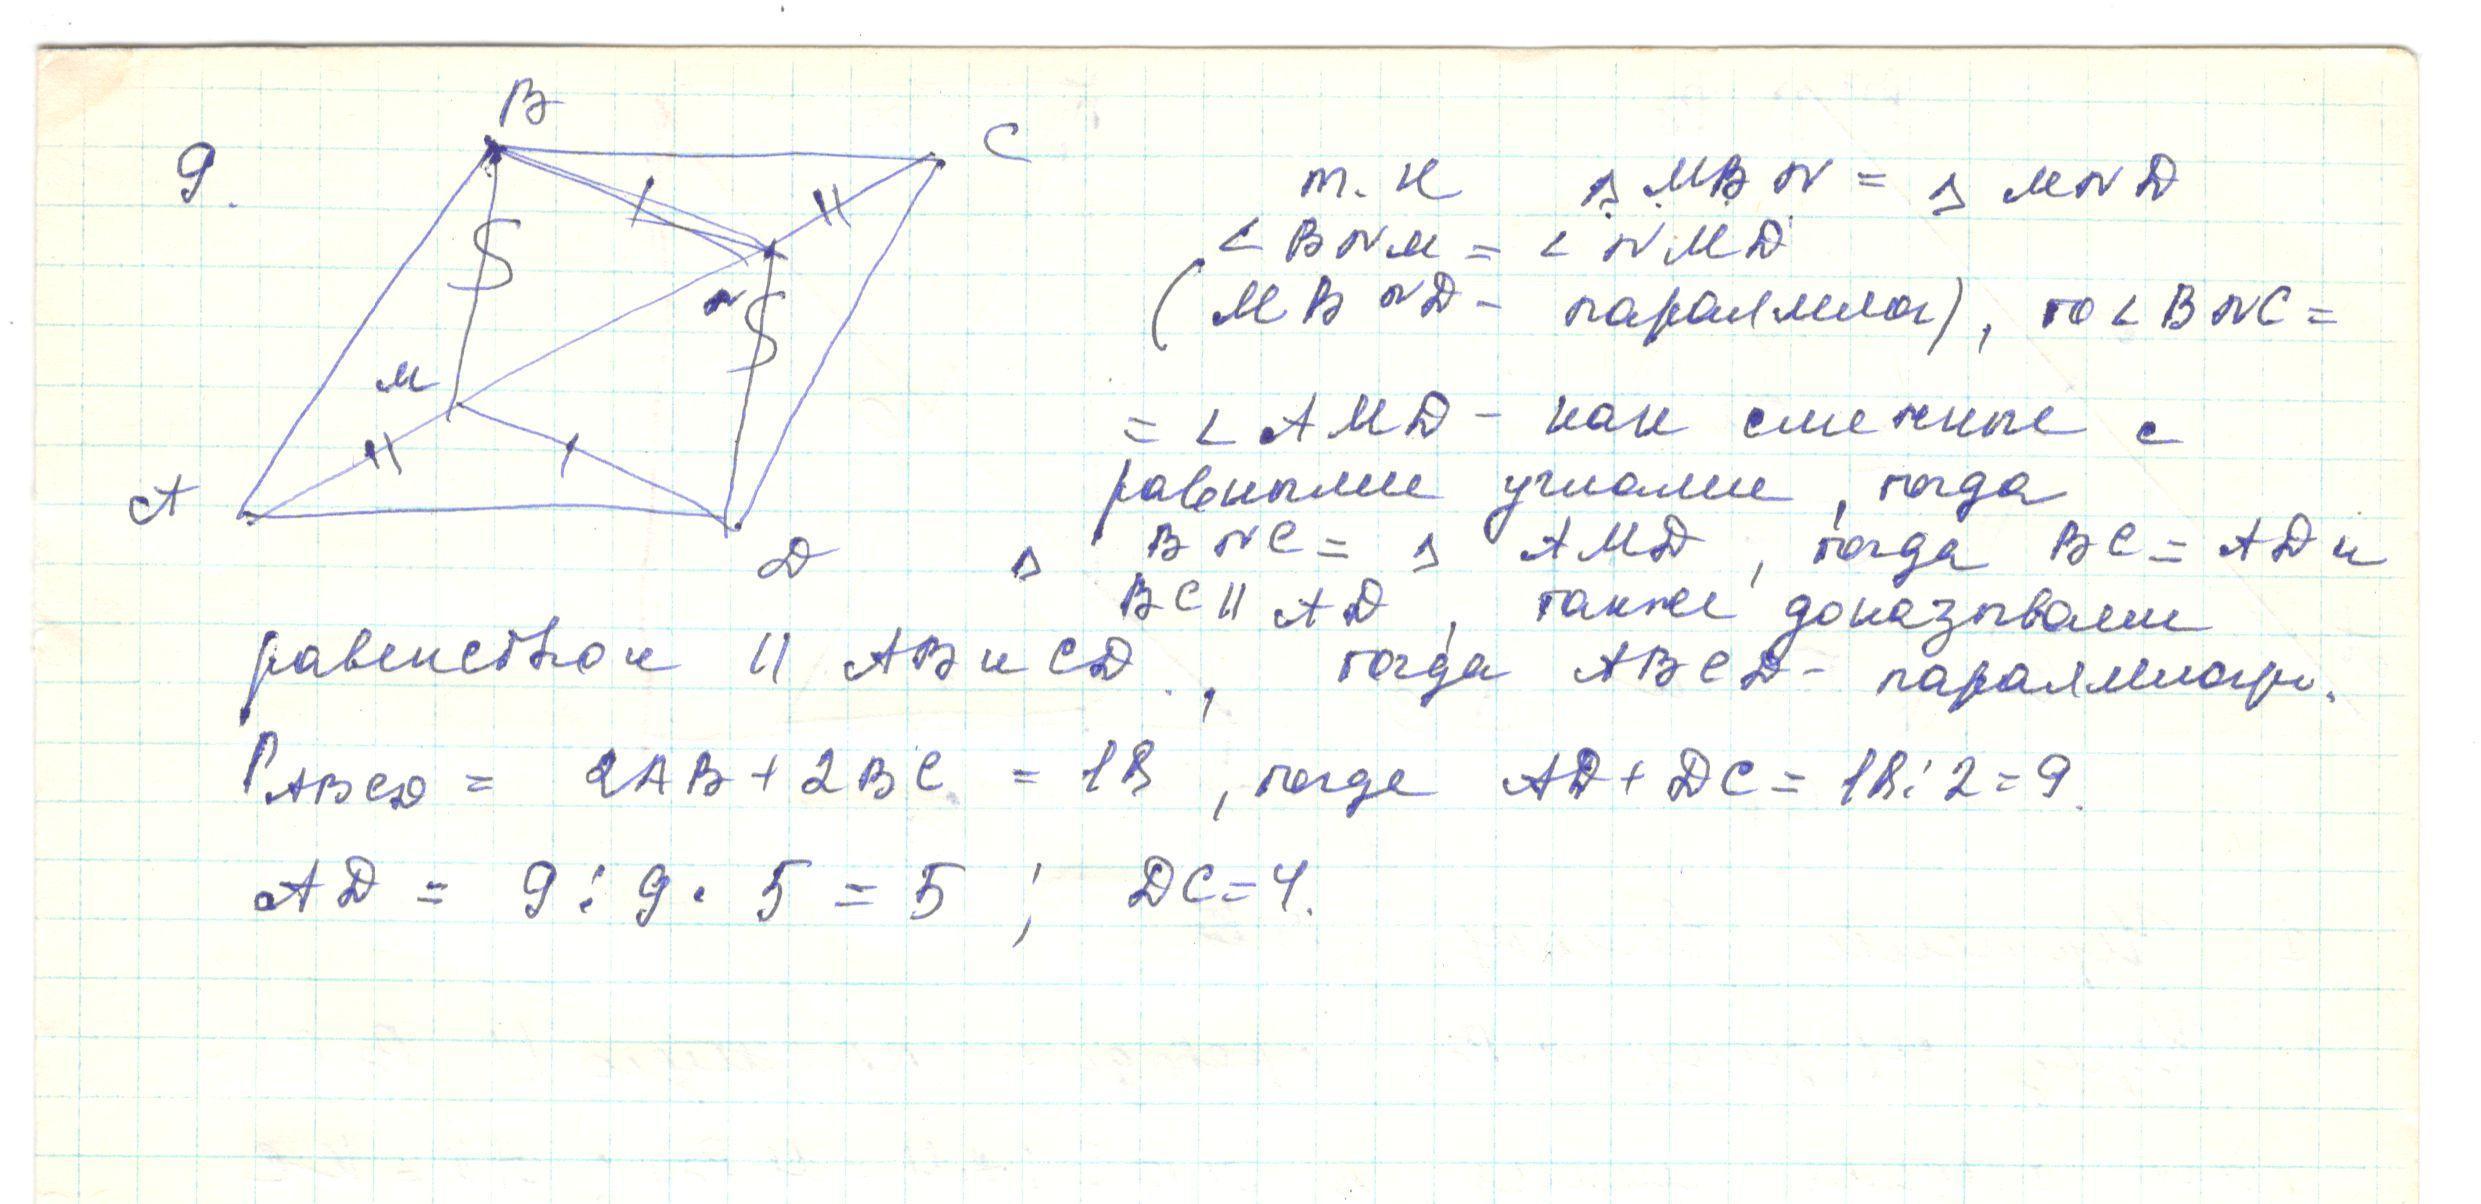 9.
B
C
N
M
A
D
т.к Δ MBN = Δ MND
∠ BNM = ∠ NMD
(MBND - параллелог), то ∠ BNC =
= ∠ AMD - как смежные с
равными углами, тогда
Δ BNC = Δ AMD, тогда BC = AD и
BC || AD, также доказываем
равенство и || AB и CD., тогда ABCD - параллелогр.
P ABCD = 2AB + 2BC = 18, тогда AD + DC = 18 : 2 = 9.
AD = 9 : 9 · 5 = 5 ; DC = 4.